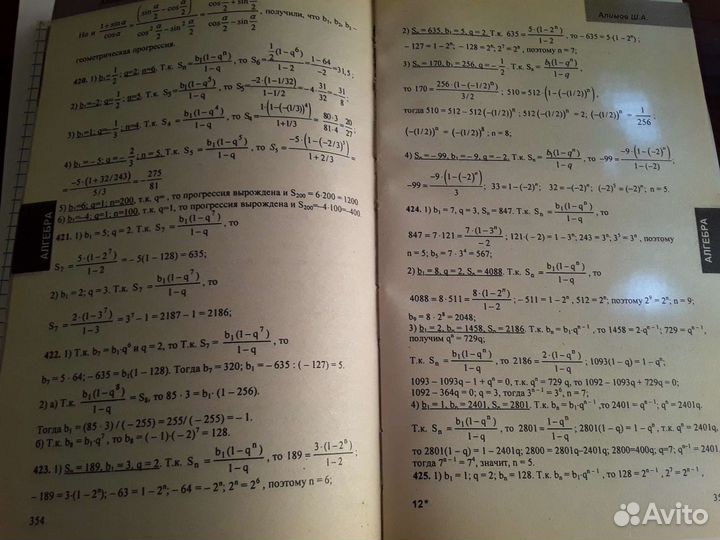 Но и (1+sinα)/cosα = (sin α/2 + cos α/2)² / (cos² α/2 − sin² α/2) = (cos α/2 + sin α/2) / (cos α/2 − sin α/2), получили, что b₁, b₂, b₃ -
геометрическая прогрессия.
420. 1) b₁=1/2; q=2; n=6. Т.к. Sₙ = b₁(1−qⁿ)/(1−q), то S₆ = 1/2(1−q⁶)/(1−2) = (1−64)/(−2) = 31,5;
2) b₁=-2; q=1/2; n=5. Т.к. S₅ = b₁(1−q⁵)/(1−q), то S₅ = −2·(1−1/32)/(1−1/2) = −4·31/32 = −31/8
3) b₁=1; q=−1/3; n=4. Т.к. S₄ = b₁(1−q⁴)/(1−q), то S₄ = 1(1−(−(1/3))⁴)/(1+1/3) = 80·3/(81·4) = 20/27;
4) b₁= – 5; q= – 2/3; n=5. Т.к. S₅ = b₁(1−q⁵)/(1−q), то S₅ = −5·(1−(−2/3)⁵)/(1+2/3) =
= −5·(1+32/243)/(5/3) = −275/81
5) b₁=6; q=1; n=200, то т.к. q= , то прогрессия вырождена и S₂₀₀= 6·200 = 1200
6) b₁=–4; q=1; n=100, т.к. q=1, то прогрессия вырождена и S₂₀₀=–4·100=–400.
421. 1) b₁ = 5; q = 2. Т.к. S₇ = b₁(1−q⁷)/(1−q), то
S₇ = 5·(1−2⁷)/(1−2) = −5(1−128) = 635;
2) b₁ = 2; q = 3. Т.к. S₇ = b₁(1−q⁷)/(1−q), то
S₇ = 2·(1−3⁷)/(1−3) = 3⁷−1 = 2187−1 = 2186;
422. 1) Т.к. b₇ = b₁·q⁶ и q = 2, то Т.к. S₇ = b₁(1−q⁷)/(1−q), то
b₇ = 5 · 64; – 635 = b₁(1–128). Тогда b₇ = 320; b₁ = – 635 : (– 127) = 5.
2) а) Т.к. b₁(1−q⁸)/(1−q) = S₈, то 85 · 3 = b₁· (1 – 256).
Тогда b₁ = (85 · 3) / (– 255) = 255/ (– 255) = – 1.
б) Т.к. b₈ = b₁·q⁷, то b₈ = (– 1)·(– 2)⁷ = 128.
423. 1) Sₙ = 189, b₁ = 3, q = 2. Т.к. Sₙ = b₁(1−qⁿ)/(1−q), то 189 = 3·(1−2ⁿ)/(1−2);
– 189 = 3·(1 – 2ⁿ); – 63 = 1 – 2ⁿ; – 64 = – 2ⁿ; 2ⁿ = 2⁶, поэтому n = 6;
354
АЛГЕБРА
Алимов Ш.А.
2) Sₙ = 635, b₁ = 5, q = 2. Т.к. 635 = 5·(1−2ⁿ)/(1−2), то – 635 = 5·(1 – 2ⁿ);
– 127 = 1 – 2ⁿ; – 128 = – 2ⁿ; 2⁷ = 2ⁿ, поэтому n = 7;
3) Sₙ = 170, b₁ = 256, q = – 1/2. Т.к. Sₙ = b₁(1−qⁿ)/(1−q),
то 170 = 256·(1−(−1/2)ⁿ)/(3/2); 510 = 512(1−(−(1/2))ⁿ),
тогда 510 = 512 – 512(−(1/2))ⁿ; 512(−(1/2))ⁿ = 2, (−(1/2))ⁿ = 1/256;
(−(1/2))ⁿ = (−(1/2))⁸; n = 8;
4) Sₙ = – 99, b₁ = – 9, q = – 2. Т.к. Sₙ = b₁(1−qⁿ)/(1−q), то –99 = −9·(1−(−2)ⁿ)/(1−(−2));
–99 = −9·(1−(−2)ⁿ)/3; 33 = 1–(–2)ⁿ; 32 = –(–2)ⁿ; (–2)⁵ = (–2)ⁿ; n = 5.
424. 1) b₁ = 7, q = 3, Sₙ = 847. Т.к. Sₙ = b₁(1−qⁿ)/(1−q), то
847 = 7·121 = 7·(1−3ⁿ)/(−2); 121·(– 2) = 1 – 3ⁿ; 243 = 3ⁿ; 3⁵ = 3ⁿ, поэтому
n = 5; b₅ = 7 · 3⁴ = 567;
2) b₁ = 8, q = 2, Sₙ = 4088. Т.к. Sₙ = b₁(1−qⁿ)/(1−q), то
4088 = 8·511 = 8·(1−2ⁿ)/(1−2); – 511 = 1 – 2ⁿ, 512 = 2ⁿ; поэтому 2⁹ = 2ⁿ; n = 9;
b₉ = 8 · 2⁸ = 2048;
3) b₁ = 2, bₙ = 1458, Sₙ = 2186. Т.к. bₙ = b₁·qⁿ⁻¹, то 1458 = 2·qⁿ⁻¹; 729 = qⁿ⁻¹,
получим qⁿ = 729q.
Т.к. Sₙ = b₁(1−qⁿ)/(1−q), то 2186 = 2·(1−qⁿ)/(1−q); 1093(1–q) = 1–qⁿ;
1093 – 1093q – 1 + qⁿ = 0, т.к. qⁿ = 729 q, то 1092 – 1093q + 729q = 0;
1092 – 364q = 0; q = 3, тогда 3ⁿ⁻¹ = 3⁶, n = 7;
4) b₁ = 1, bₙ = 2401, Sₙ = 2801. Т.к. bₙ = b₁·qⁿ⁻¹, то 2401 = qⁿ⁻¹, qⁿ = 2401q.
Т.к. Sₙ = b₁(1−qⁿ)/(1−q), то 2801 = (1−qⁿ)/(1−q); 2801(1–q) = 1 – qⁿ, т.к. qⁿ = 2401q,
то 2801(1 – q) = 1 – 2401q; 2800 = 2801q–2401q; 2800=400q; q=7; qⁿ⁻¹ = 2401,
тогда 7ⁿ⁻¹ = 7⁴, значит, n = 5.
425. 1) b₁ = 1; q = 2; bₙ = 128. Т.к. bₙ = b₁·qⁿ⁻¹, то 128 = 2ⁿ⁻¹, 2⁷ = 2ⁿ⁻¹,
12*
АЛГЕБРА
Avito